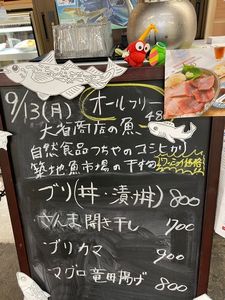 9/13(月) オールフリー
大谷商店の魚
自然食品つちやのコシヒカリ
築地魚市場の干物
ブリ(丼・漬丼) 800
さんま開き干し 700
ブリカマ 900
マグロ竜田揚げ 800